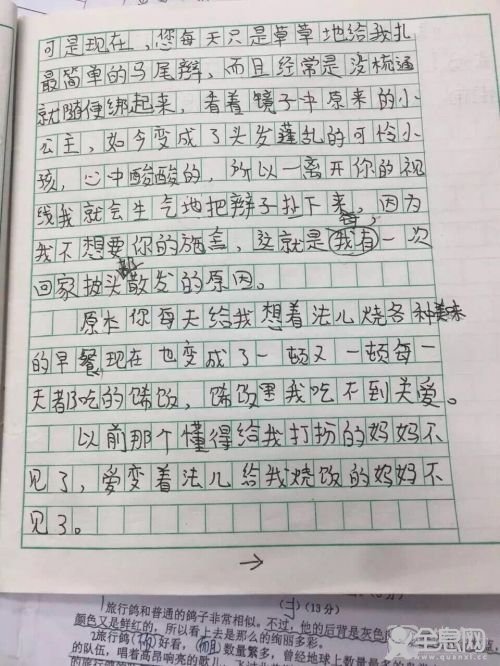 可是现在，您每天只是草草地给我扎
最简单的马尾辫，而且经常是没梳通
就随便绑起来，看着镜子中原来的小
公主，如今变成了头发蓬乱的可怜小
孩，心中酸酸的，所以一离开你的视
线我就会生气地把辫子扯下来，因为
我不想要你的施舍，这就是我有一次
回家披头散发的原因。
原本你每天给我想着法儿烧各种美味
的早餐现在也变成了一顿又一顿每一
天都吃的馊饭，馊饭里我吃不到关爱。
以前那个懂得给我打扮的妈妈不
见了，爱变着法儿给我烧饭的妈妈不
见了。
→
(二)(13分)
1旅行鸽和普通的鸽子非常相似。不过，他的后背是灰色
颜色又是鲜红的，所以看上去是那么的绚丽多彩。
2旅行鸽 好看， 数量繁多，曾经地球上数量最多的
的队伍，唱着高昂响亮的歌儿，
全息网
www.quanxi.cc